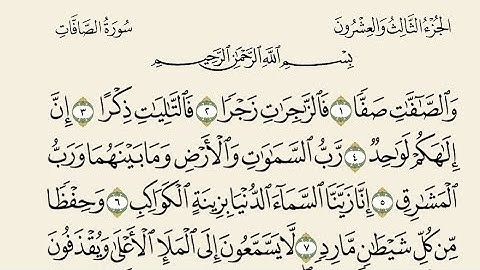 الجُزْءُ الثَّالِثُ وَالعِشْرُونَ
سُورَةُ الصَّافَّاتِ
بِسْمِ ٱللَّهِ ٱلرَّحْمَٰنِ ٱلرَّحِيمِ
وَٱلصَّٰٓفَّٰتِ صَفًّا ١ فَٱلزَّٰجِرَٰتِ زَجْرًا ٢ فَٱلتَّٰلِيَٰتِ ذِكْرًا ٣ إِنَّ
إِلَٰهَكُمْ لَوَٰحِدٌ ٤ رَّبُّ ٱلسَّمَٰوَٰتِ وَٱلْأَرْضِ وَمَا بَيْنَهُمَا وَرَبُّ
ٱلْمَشَٰرِقِ ٥ إِنَّا زَيَّنَّا ٱلسَّمَآءَ ٱلدُّنْيَا بِزِينَةٍ ٱلْكَوَاكِبِ ٦ وَحِفْظًا
مِّن كُلِّ شَيْطَٰنٍ مَّارِدٍ ٧ لَّا يَسَّمَّعُونَ إِلَى ٱلْمَلَإِ ٱلْأَعْلَىٰ وَيُقْذَفُونَ